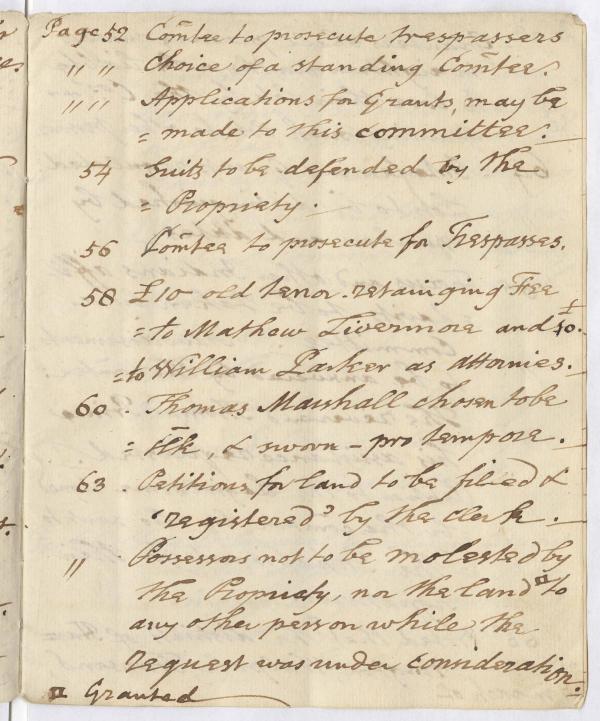 Page 52 Com̃tee to prosecute trespassers
" " Choice of a standing Com̃tee.
" " Applications for Grants, may be
= made to this committee.
54 Suits to be defended by the
= Propriety.
56 Com̃tee to prosecute for Trespasses.
58 £10 old tenor. retainging Fee
= to Mathew Livermore and £10.
= to William Parker as attornies.
60. Thomas Marshall chosen to be
= Clk, & sworn - pro tempora.
63. Petitions for land to be filied &
'registered' by the clerk.
" Possessors not to be molested by
the Propriety, nor the land ¤ to
any other person while the
request was under consideration.
¤ Granted